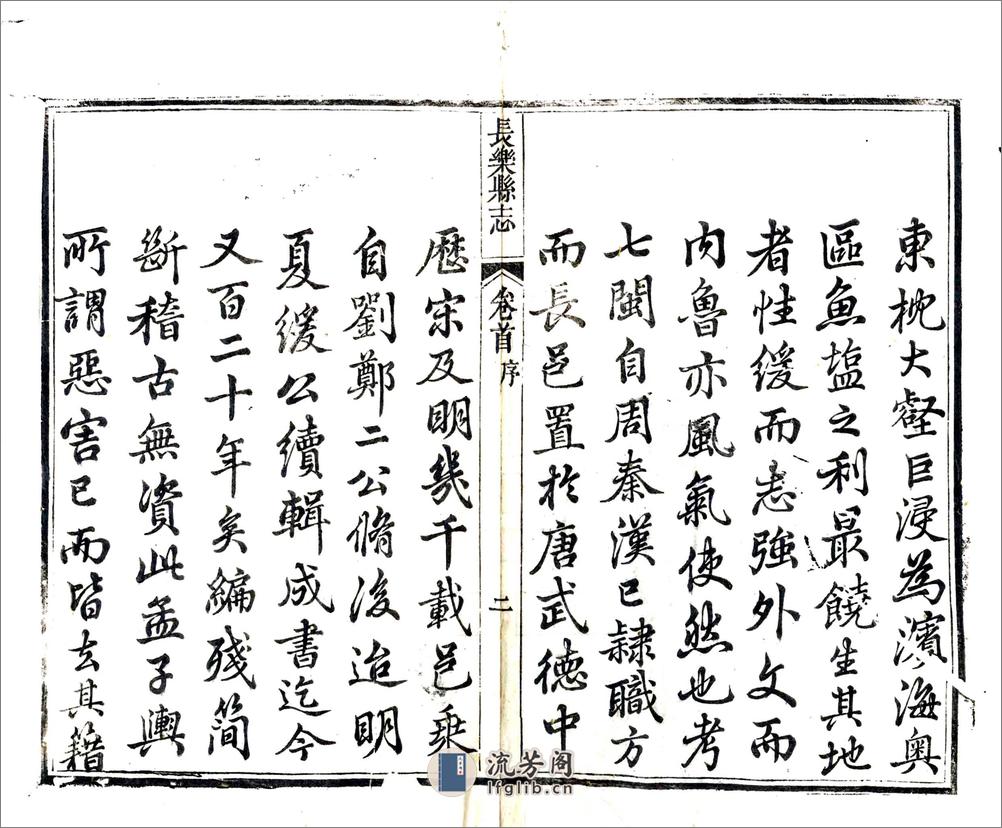 東枕大壑巨浸為濱海奧
區魚塩之利最饒生其地
者性緩而志強外文而
内魯亦風氣使然也考
七閩自周秦漢已隷職方
而長邑置於唐武德中
長樂縣志
卷首
序
二
歷宋及明幾千載邑乗
自劉鄭二公脩後迨明
夏緩公續輯成書迄今
又百二十年矣編殘簡
斷稽古無資此孟子輿
所謂惡害已而皆去其籍
流芳阁
lfglib.cn